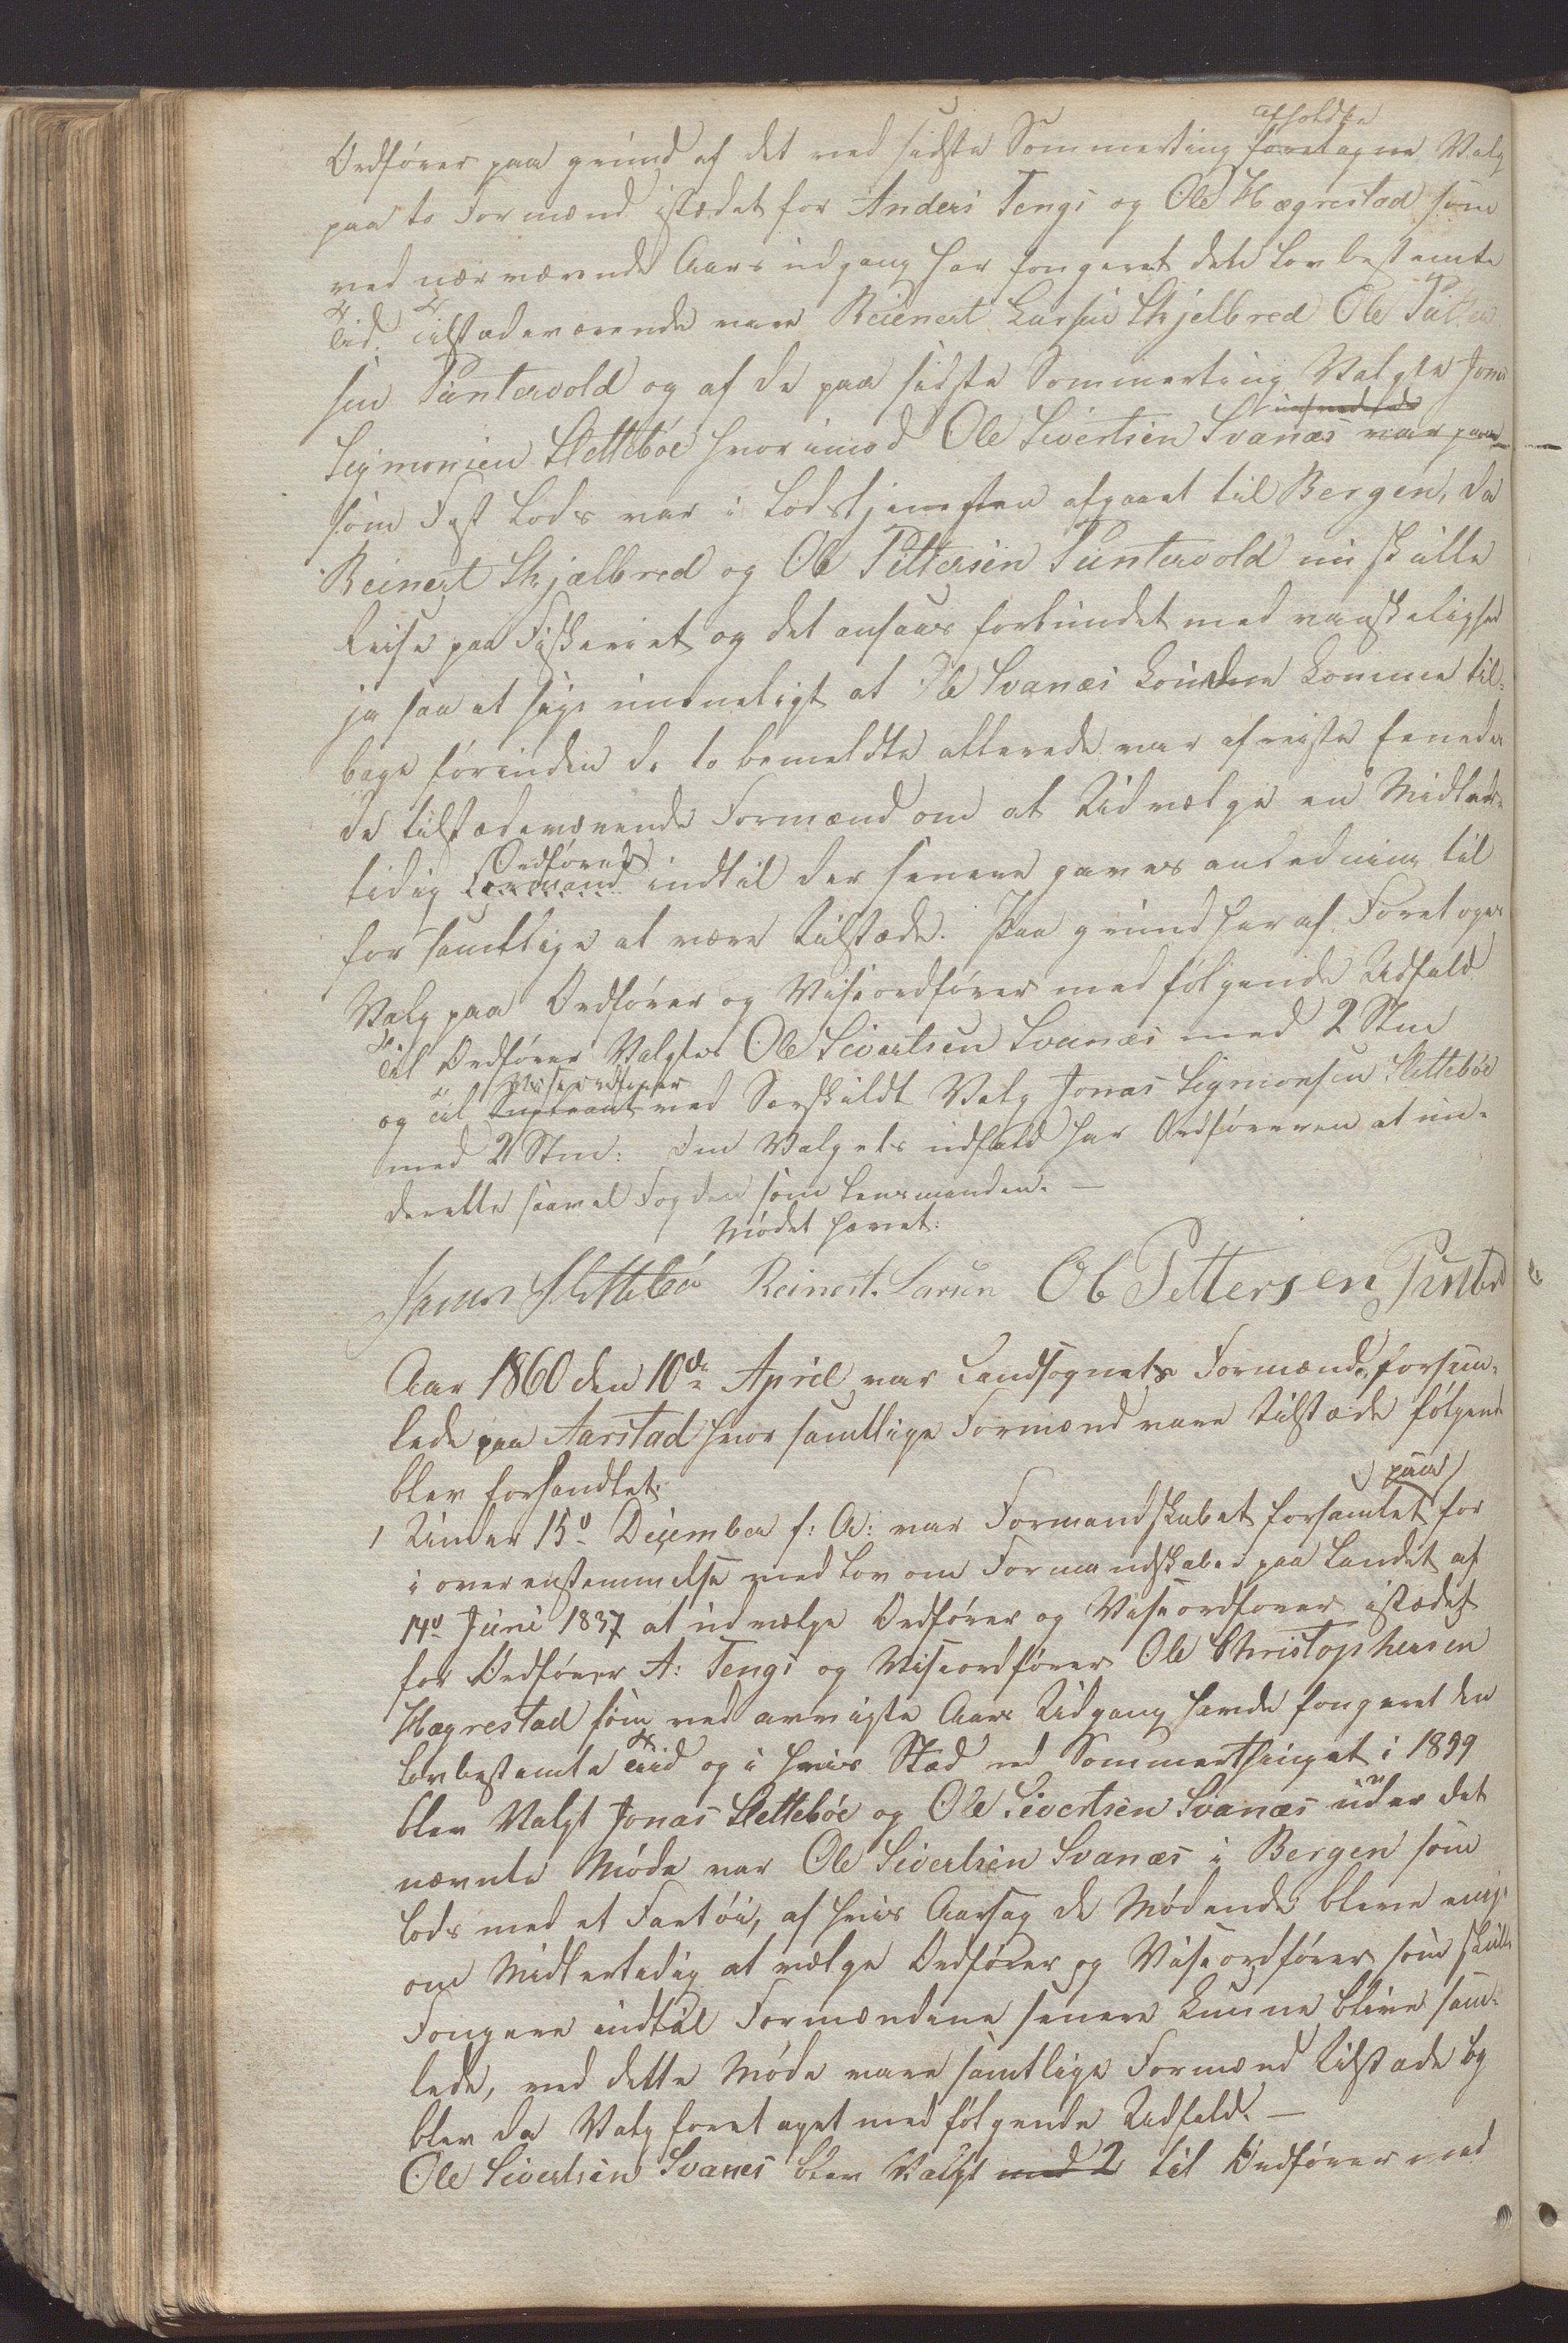 Ordfører paa grund af det ved sidste Sommerting afholdte foretagne Valg
paa to Formænd istædet for Anders Tengs og Ole Hægrestad som
ved nærværende Aars udgang har fongeret dete Lovbestemte
Tid. Tilstædeværende vare Reienert Larsen Skjelbred Ole Pitter
sen Puntervold og af de paa sidste Sommerting Valgte Jonas
Sigmonsen Slettebøe hvorimod Ole Sivertsen Svanæs var paa
som Fast Lods var i Lodstjenesten afgaaet til Bergen, da
Reinert Skjælbred og Ole Pittersen Puntervold nu skulle
Reise paa Fiskeriet og det ansaaes forbundet med vanskelighed
ja saa at sige umueligt at Ole Svanæs kunde komme til-
bage førinden de to bemeldte allerede var afreiste Enedes
de tilstædeværende Formænd om at Udvælge en Midler-
tidig Ordfører Formand indtil der senere gaves anledning til
for samtlige at være tilstæde. Paa grund heraf Foretoges
Valg paa Ordfører og Viseordfører med følgende Udfald
Til Ordfører Valgtes Ole Sivertsen Svanæs med 2 Stm
og til Viseordfører Supleant ved Særskildt Valg Jonas Sigmonsen Slettebøe
med 2 Stm: Om Valgets udfald har Ordføreren at un-
derette saavel Fogden som Lensmanden. —
Mødet hævet:
Jonas Slettebø Reinert Larsen Ole Pettersen Punterv
Aar 1860 den 10de April var Landsognets Formænd forsam-
lede paa Aarstad hvor samtlige Formænd vare tilstæde følgende
blev forhandlet:
1 Under 15de Deijember f: A: var Formandskabet forsamlet paa for
i overenstemmelse med Lov om Formandskaber paa Landet af
14de Juni 1837 at udvælge Ordfører og Viseordfører istædet
for Ordfører A: Tengs og Viseordfører Ole Christophersen
Hægrestad som ved avvigte Aars Udgang havde fongeret den
lovbestemte Tid og i hvis Stæd ved Sommerthinget i 1859
blev Valgt Jonas Slettebøe og Ole Sivertsen Svanæs under det
nævnte Møde var Ole Sivertsen Svanæs i Bergen som
Lods med et Fartøi, af hvis Aarsag de Mødende bleve enige
om Midlertidig at vælge Ordfører og Viseordfører som skulle
Fongere indtil Formændene senere kunne blive sam-
lede, ved dette Møde vare samtlige Formænd tilstæde og
blev da Valg foretaget med følgende Udfald. —
Ole Sivertsen Svanes blev Valgt med 2 til Ordfører med